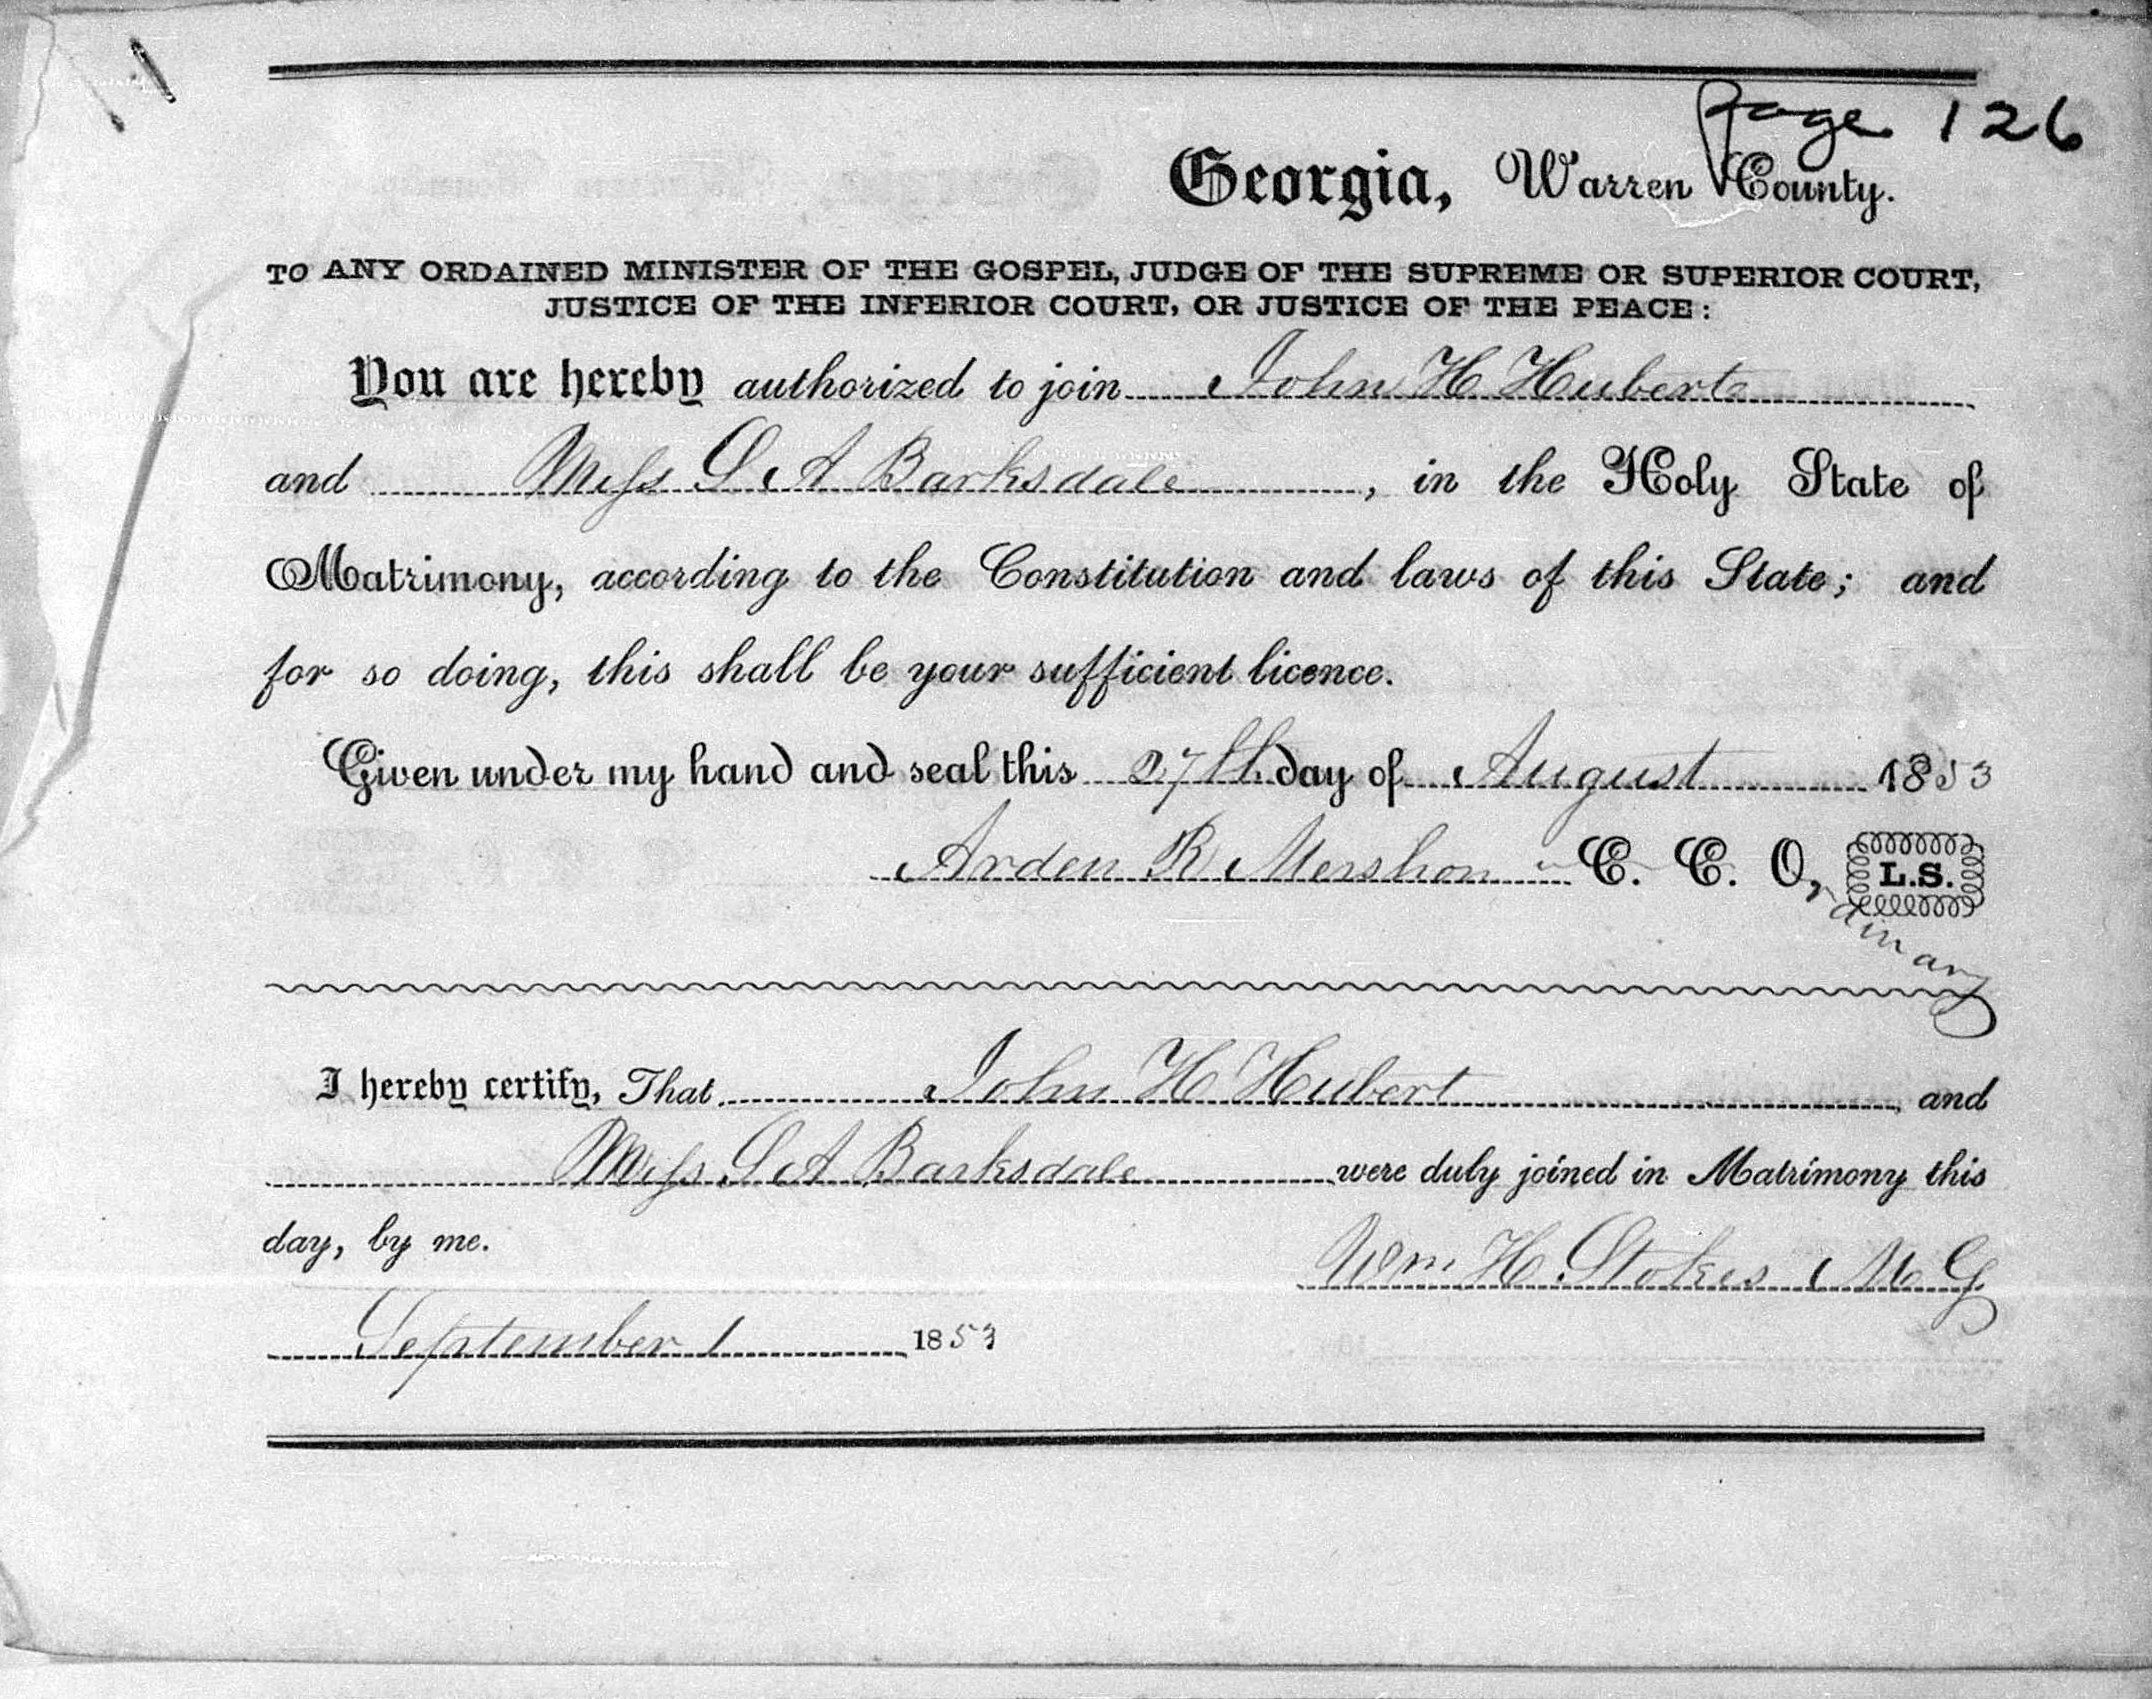 page 126
Georgia, Warren County.
TO ANY ORDAINED MINISTER OF THE GOSPEL, JUDGE OF THE SUPREME OR SUPERIOR COURT,
JUSTICE OF THE INFERIOR COURT, OR JUSTICE OF THE PEACE:
You are hereby authorized to join John H Hubert
and Miss S A Barksdale, in the Holy State of
Matrimony, according to the Constitution and laws of this State; and
for so doing, this shall be your sufficient licence.
Given under my hand and seal this 27th day of August 1853
Arden R Mershon C. C. Ordinary L.S.
I hereby certify, That John H Hubert, and
Miss S A Barksdale were duly joined in Matrimony this
day, by me.
Wm H Stokes M G
September 1 1853